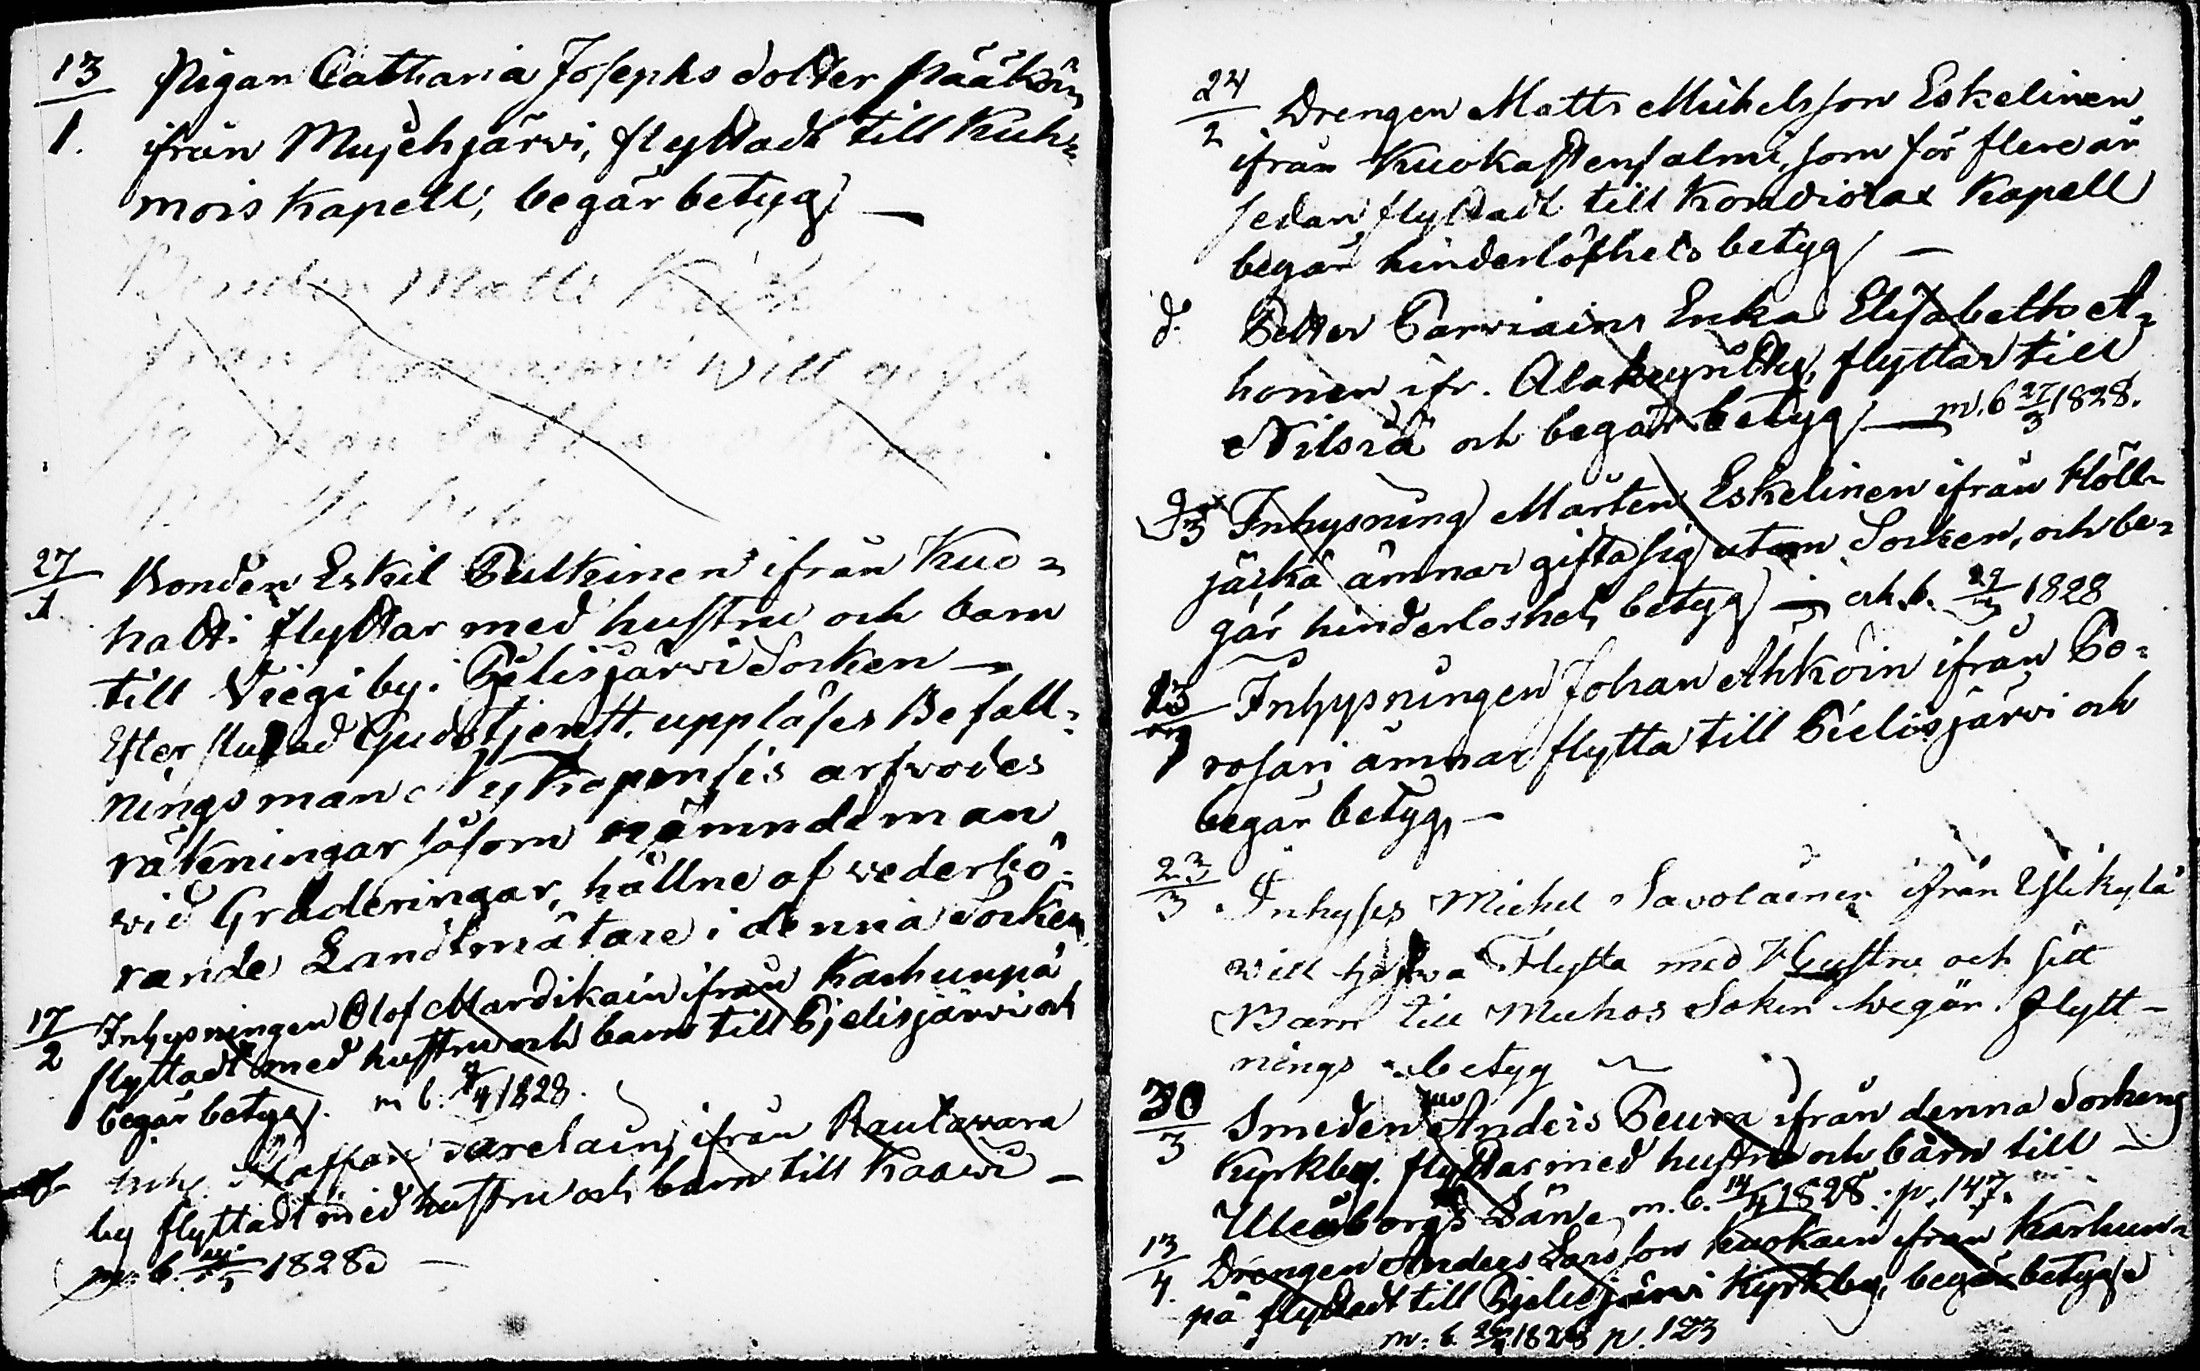 13/1. Pigan Catharia Josephs dotter Pääkön
ifrån Mujehjärvi, flyttadt till Kuh=
mois Kapell, begär betyg. —
Bonden Matts
från will gifta
sig
27/1 Bonden Eskil Pulkinen ifrån Kuo=
hatti flyttar med hustru och barn
till Viegi by i Pielisjärvi Socken —
Efter slutad Gudstjenst. uppläses Befall=
ningsman Nykopensis arfvodes
räkningar såsom nämndeman
vid Graderingar, hållne af vederbö=
rande Landtmätare i denna Socken.
17/2 Inhysningen Olof Mardikain ifrån Karhunpä
flyttadt med hustru och barn till Pielisjärvi och
begär betyg. m b. /4 1828.
inh. Staffan Karelain, ifrån Rautavara
by flyttadt med hustru och barn till Kaavi —
m. b. 1828. —
24/2 Drengen Matts Michelsson Eskelinen
ifrån Kuokastensalmi, som för flere år
sedan flyttadt till Kondiolax Kapell
begär hinderlöshets betyg. —
d. Petter Parviains Enka Elisabeth A=
honen ifr. Alakeyritty, flyttar till
Nilsiä och begär betyg. — m. b 27/3 1828.
/3 Inhysning Mårten Eskelinen ifrån Höll=
jäkä ämnar gifta sig utom Socken, och be=
gär hinderloshets betyg — erh. b. 1828
23/3 Inhysningen Johan Ahkoin ifrån Po=
rosari ämnar flytta till Pielisjärvi och
begär betyg, —
23/3 Inhyses Michel Savolainen ifrån Ylikylä
will hafwa Flytta med Hustru och sitt
Barn till Muhos Soken begär flytt-
nings betyg
30/3 Smeden Anders Peura ifrån denna Sockens
Kyrkby. flyttar med hustru och barn till
Uleåborgs Län. m. b. 14/4 1828. p. 147.
13/4. Drengen Anders Larsson Kuokain ifrån Karhun=
pä flyttadt till Pielisjärvi Kyrkby, begär betyg.
m. b. 26/4 1828 p. 123